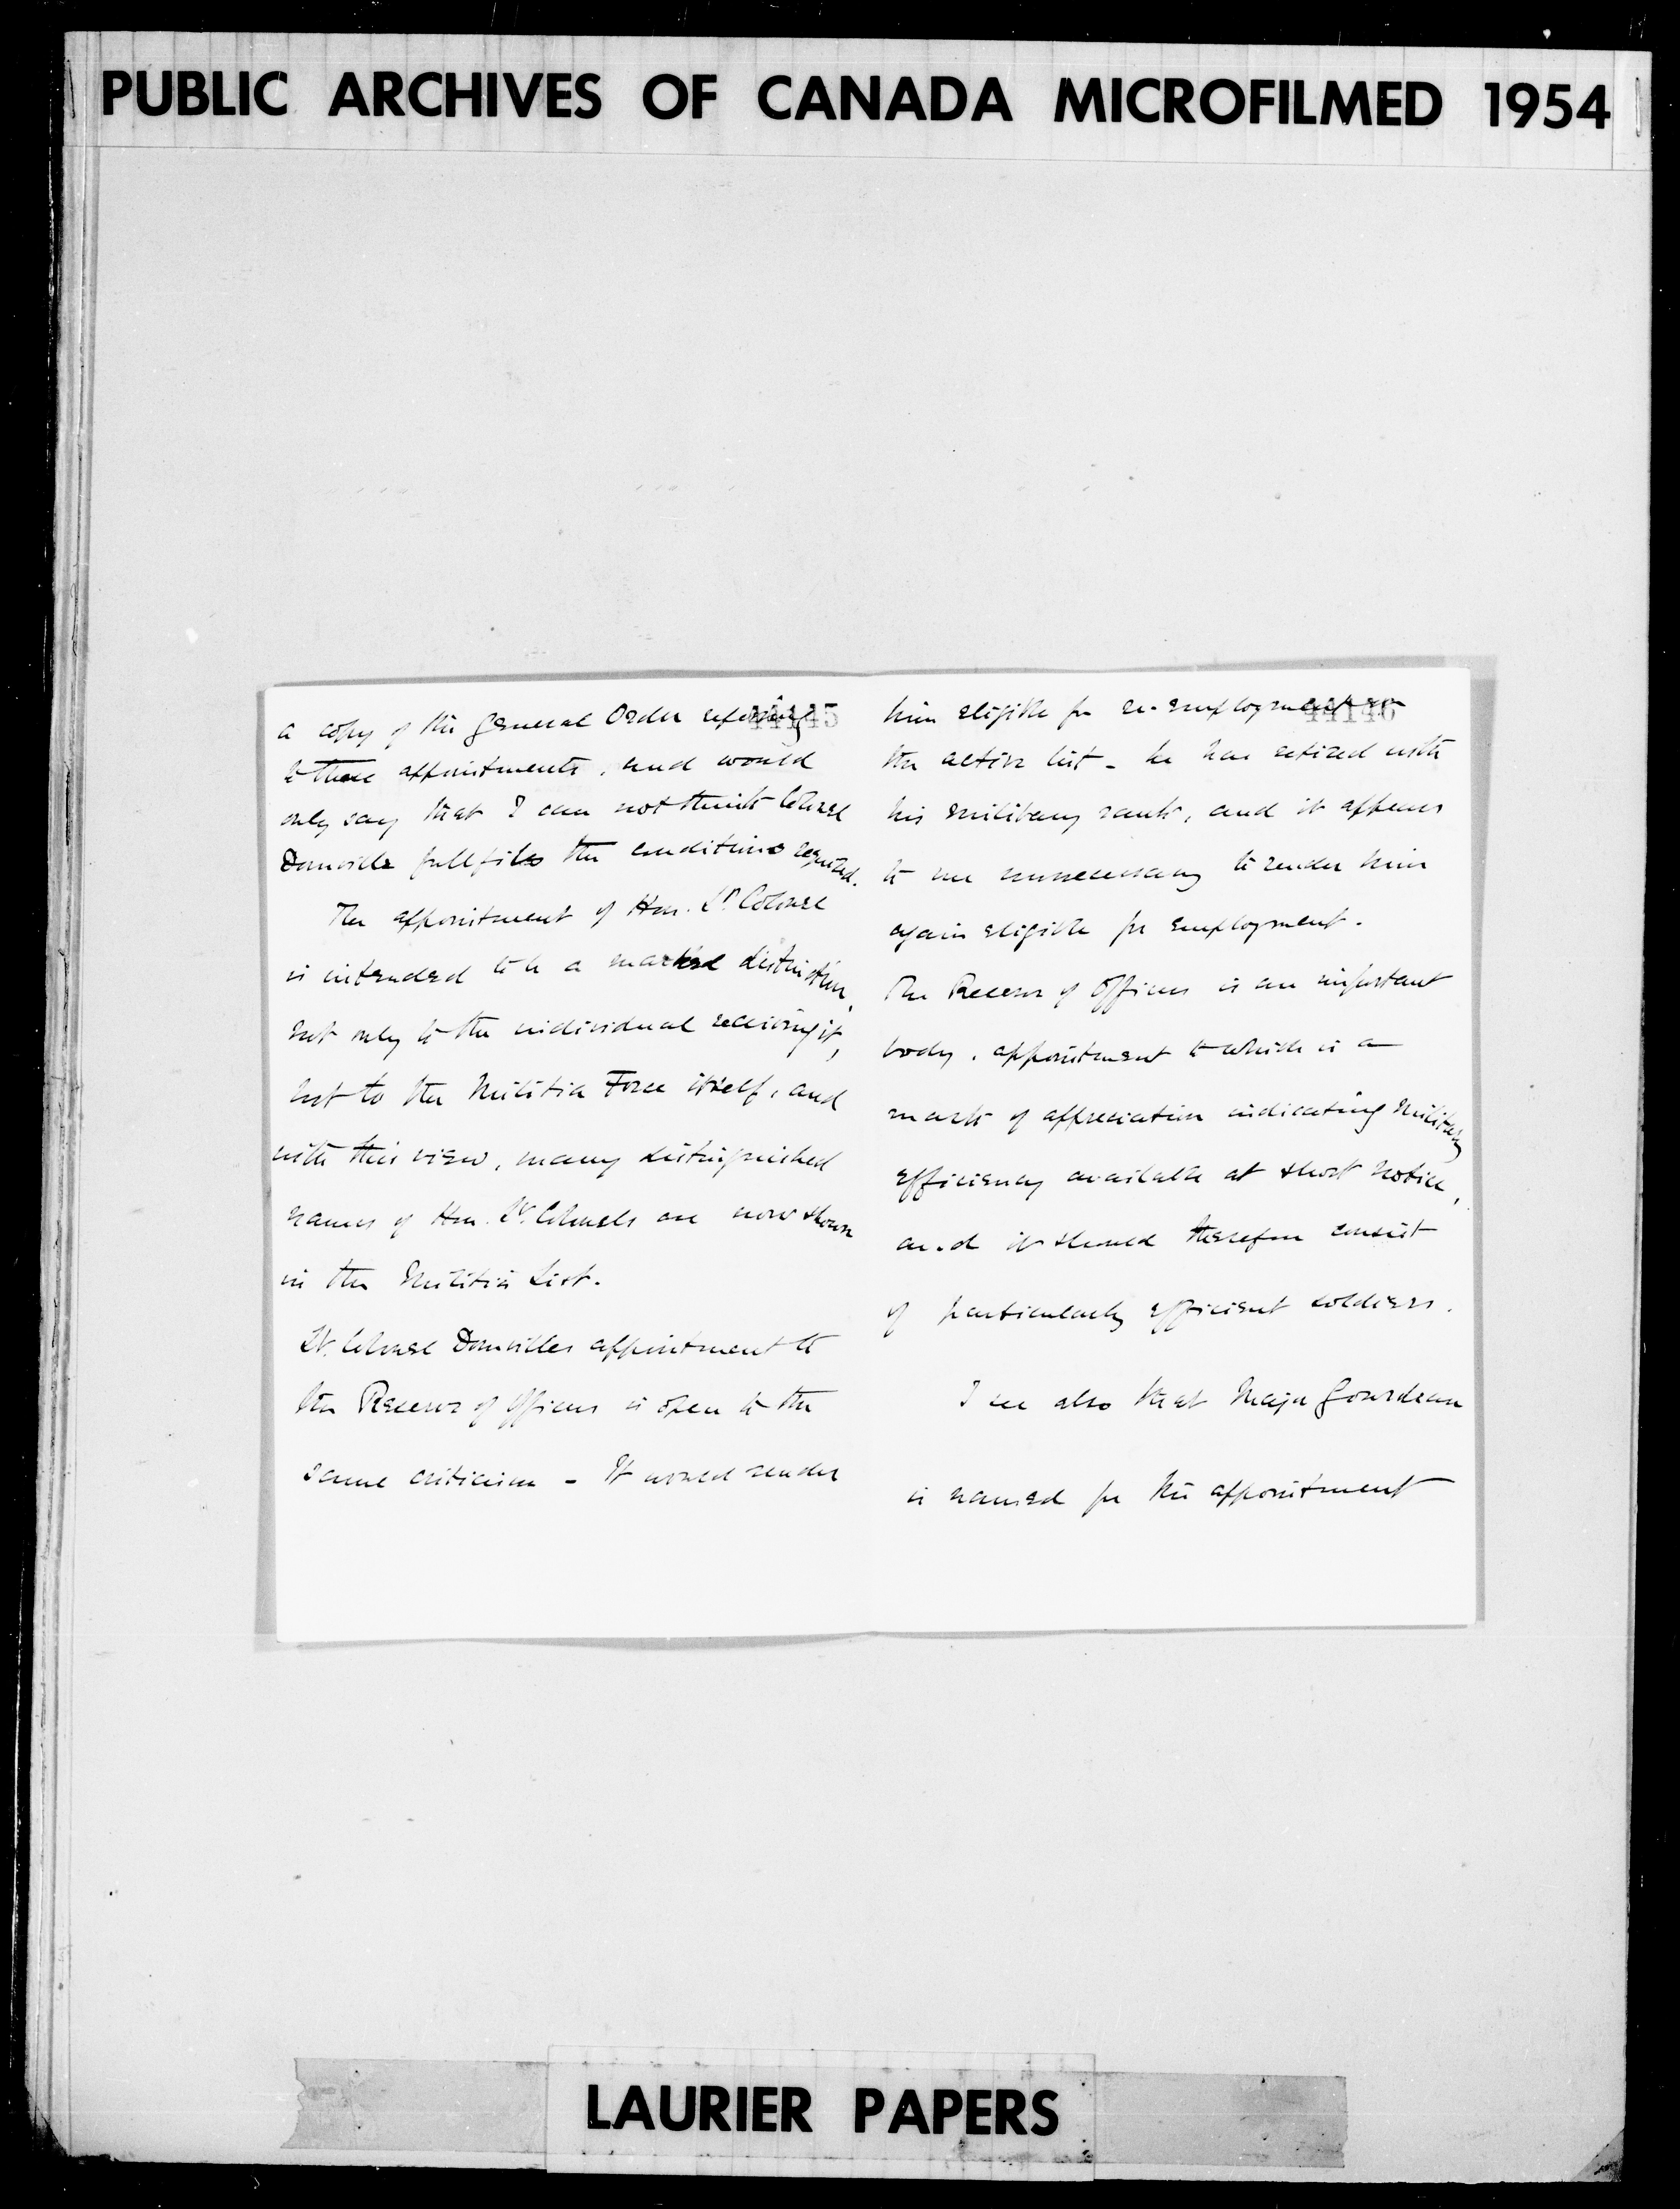 PUBLIC ARCHIVES OF CANADA MICROFILMED 1954
44145
a copy of the General Order referring
to these appointments, and would
only say that I can not think Colonel
Domville fullfils the conditions required.
The appointment of Hon. Lt. Colonel
is intended to be a marked distinction,
not only to the individual receiving it,
but to the Militia Force itself, and
with this view, many distinguished
names of Hon. Lt. Colonels are now shown
in the Militia List.
Lt. Colonel Domvilles appointment to
the Reserve of Officers is open to the
same criticism - It would render
44146
him eligible for re-employment on
the active list - he has retired with
his military rank, and it appears
to me unnecessary to render him
again eligible for employment.
The Reserve of Officers is an important
body, appointment to which is a
mark of appreciation indicating military
efficiency available at short notice,
and it should therefore consist
of particularly efficient soldiers.
I see also that Major Gourdeau
is named for the appointment
LAURIER PAPERS